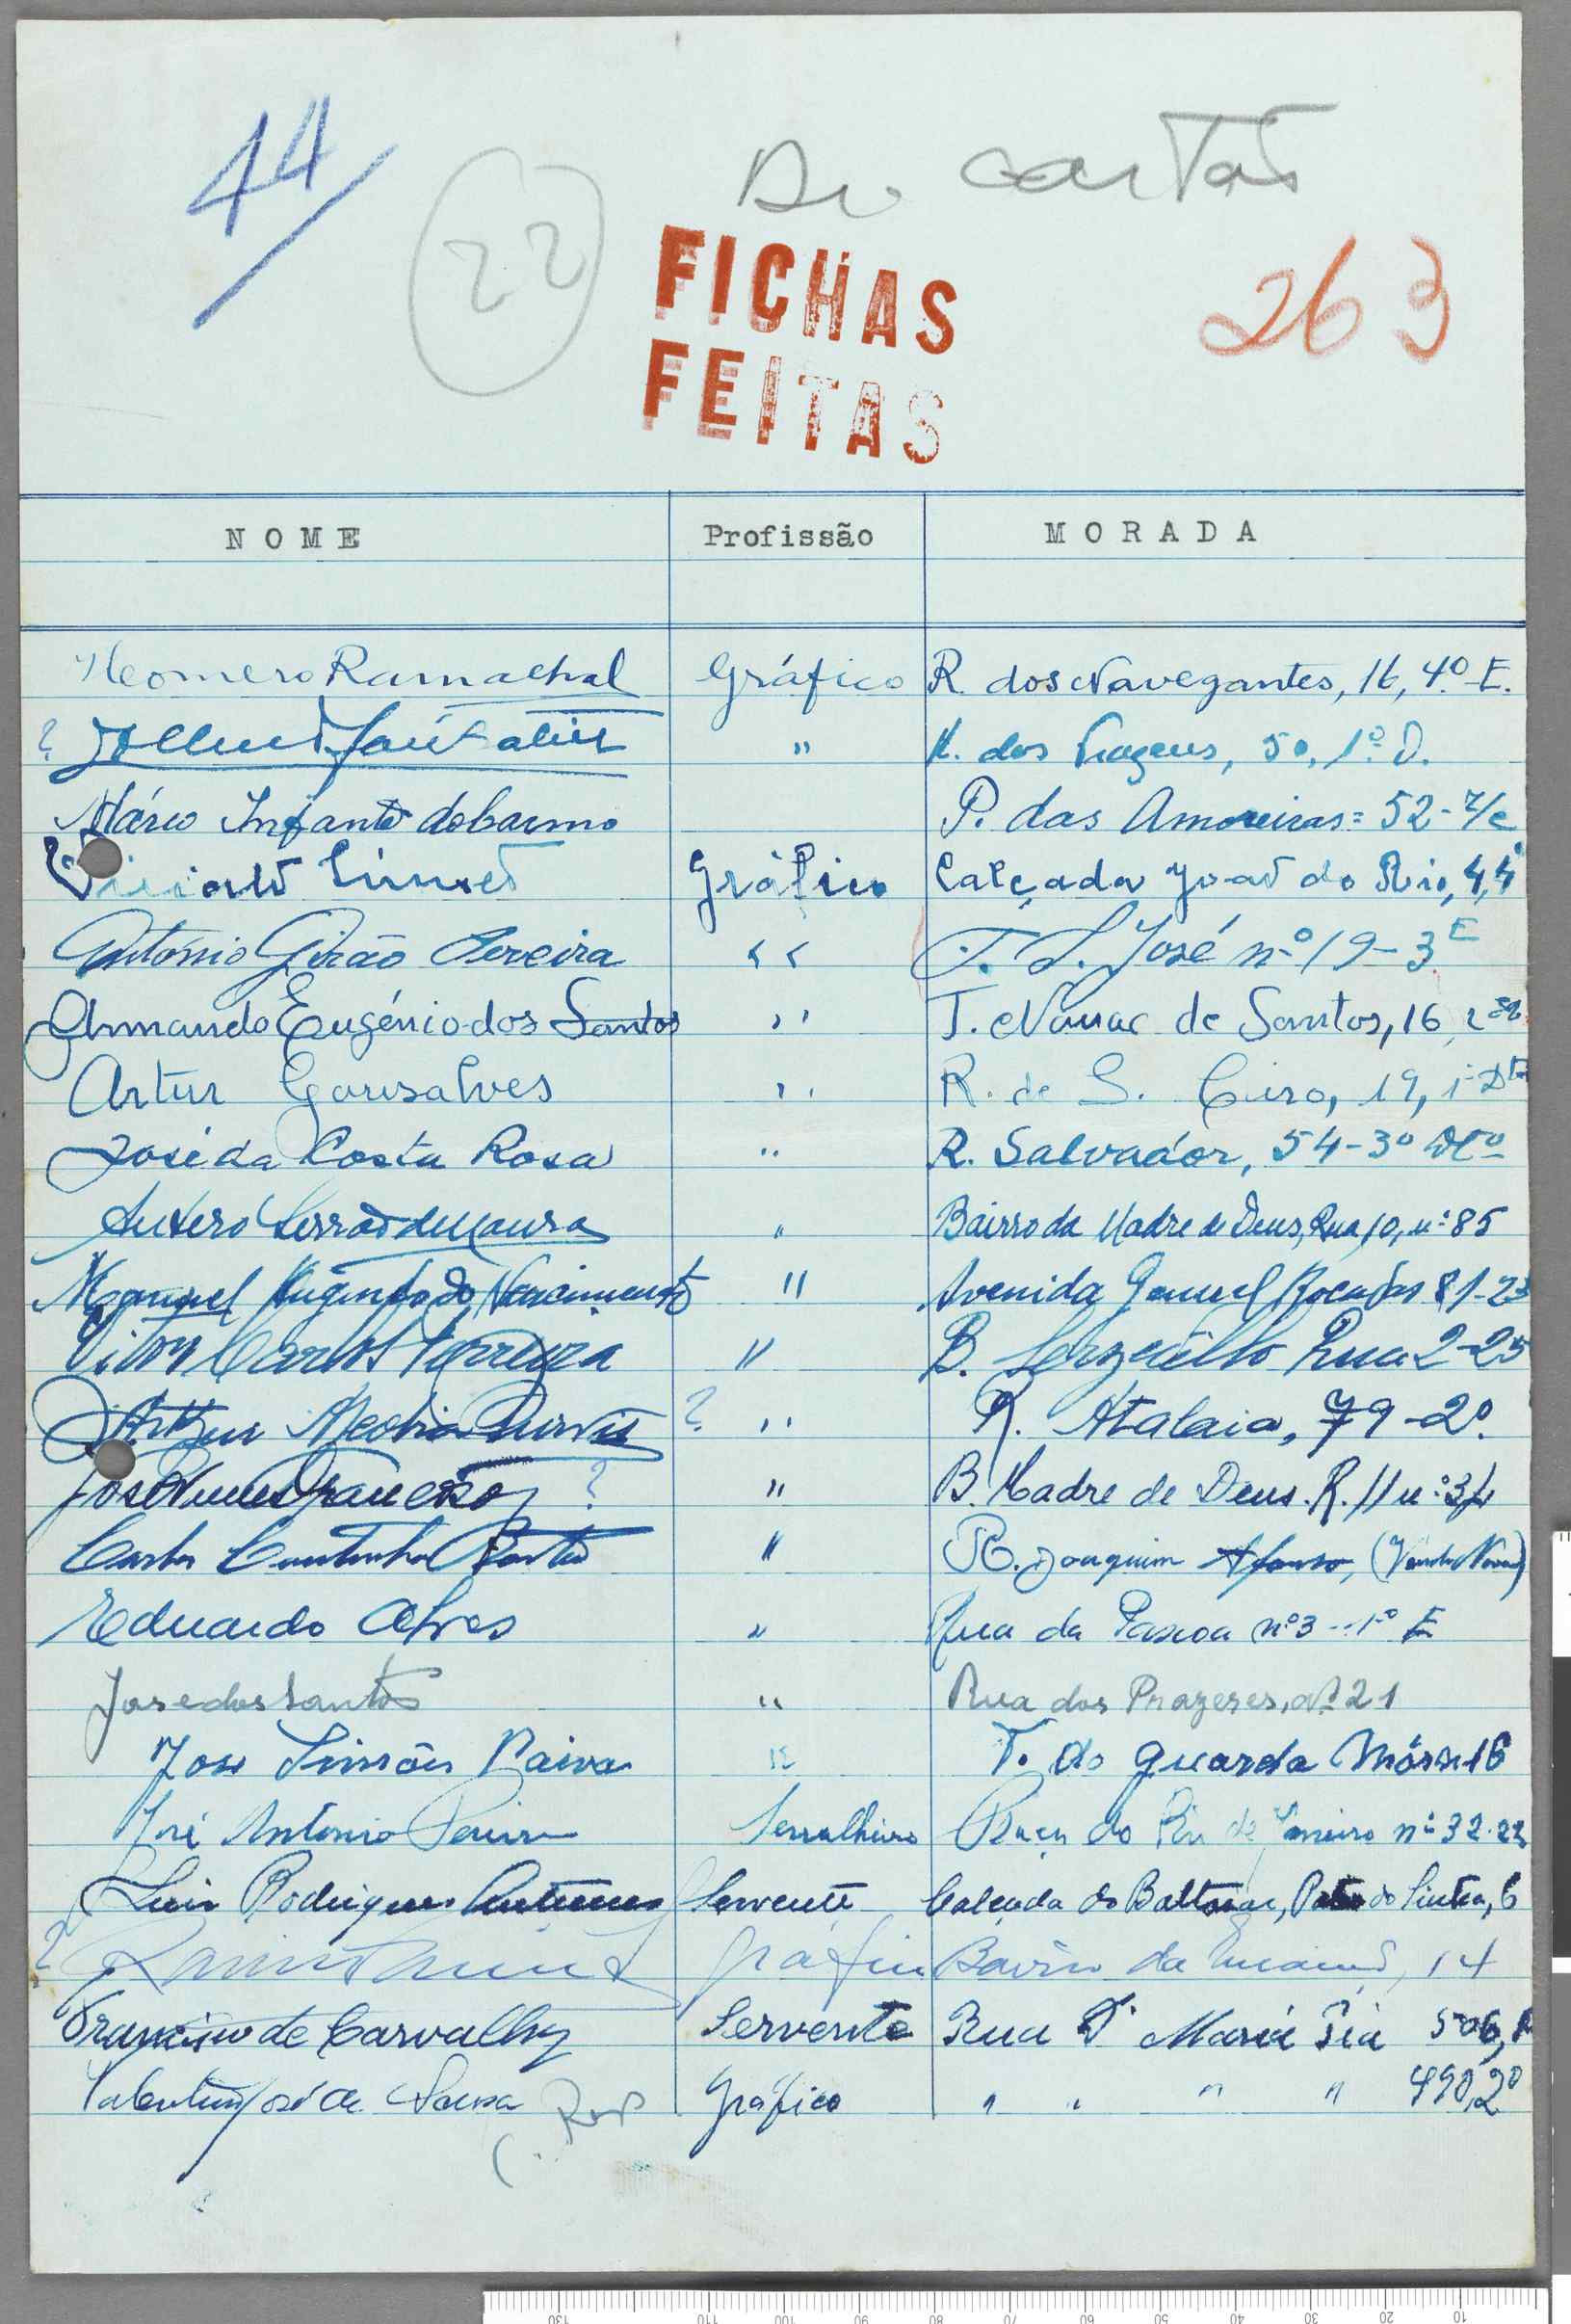 44
22
263
FICHAS
FEITAS
NOME Profissão MORADA
Homero Ramachal Gráfico R. dos Navegantes, 16, 4.º E.
? " R. dos 50, 1.º D.
Mário Infante do Carmo P. das Amoreiras = 52 - r/c
? Gráfico Calçada João do Rio, 4, 4º
António Girão Pereira " T. S. José nº 19 - 3 E
Armando Eugénio dos Santos " T. de Santos, 16
Artur Gonsalves " R. de S. Ciro, 19, 1º Dto
José da Costa Rosa " R. Salvador, 54 - 3º Dtº
Antero Serrão de Moura " Bairro da Madre de Deus, Rua 10, nº 85
Manuel Augusto do Nascimento " Avenida General Roçadas 81-23
Vitor Carlos Ferreira " B. Rua 2-25
Artur ? " R. Atalaia, 79 - 2º.
José Nunes Francisco ? " B. Madre de Deus. R. 11 nº 34
Carlos Coutinho " R. Joaquim Afonso, (Venda Nova)
Eduardo Alves " Rua da Pascoa nº 3 - 1º E
Jose dos Santos " Rua dos Prazeres, nº 21
Jose Simões Paiva " T. do Guarda Mór nº 16
José Antonio Pereira Serralheiro Praça do Rio de Janeiro nº 32
Luis Rodrigues Antunes Servente Calçada do Baltazar, Pateo do Sintra, 6
? Gráfico Bairro da 14
Francisco de Carvalho Servente Rua Dª Maria Pia 506,
Valentim José de Sousa Gráfico " " " " 490, 2º